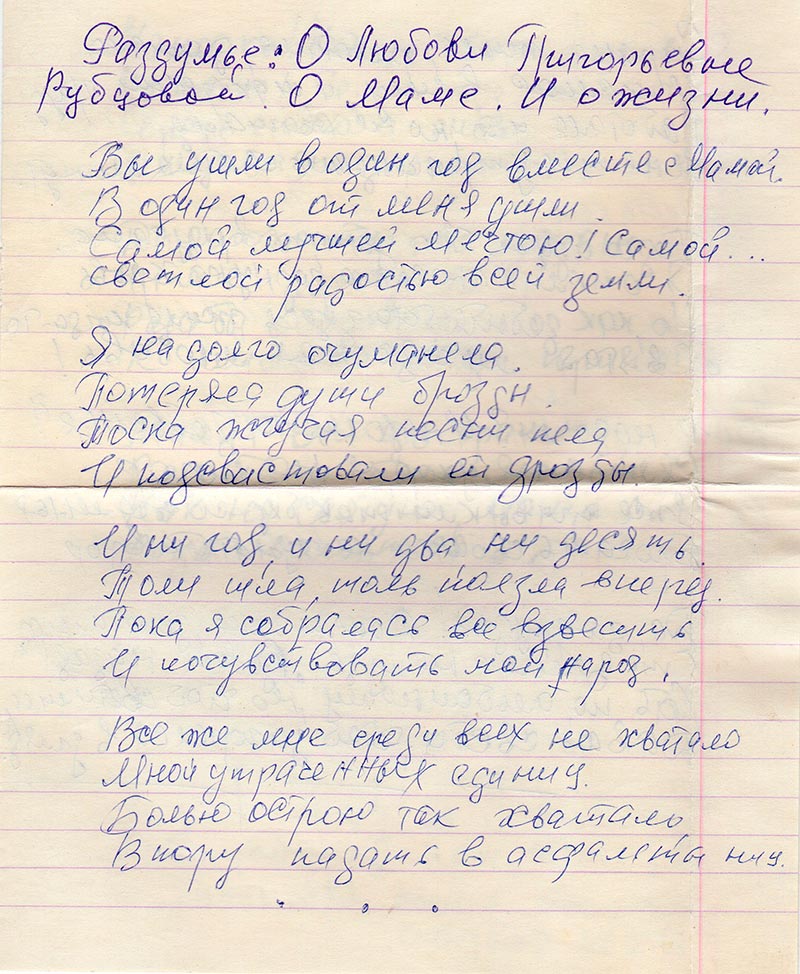 Раздумье: О Любови Григорьевне
Рубцовой. О Маме. И о жизни.
Вы ушли в один год вместе с Мамой.
В один год от меня ушли.
Самой лучшей мечтою! Самой...
светлой радостью всей земли.
Я надолго очуманела.
Потеряла души брозды.
Тоска жгучая песни пела
И подсвастовали ей дрозды.
И ни год, и ни два ни десять,
Толи шла, толь ползла вперед.
Пока я собралась все взвесить
И почувствовать мой народ.
Все же мне среди всех не хватало
Мной утраченных единиц.
Болью острою так хватало,
Впору падать в асфальты ниц.